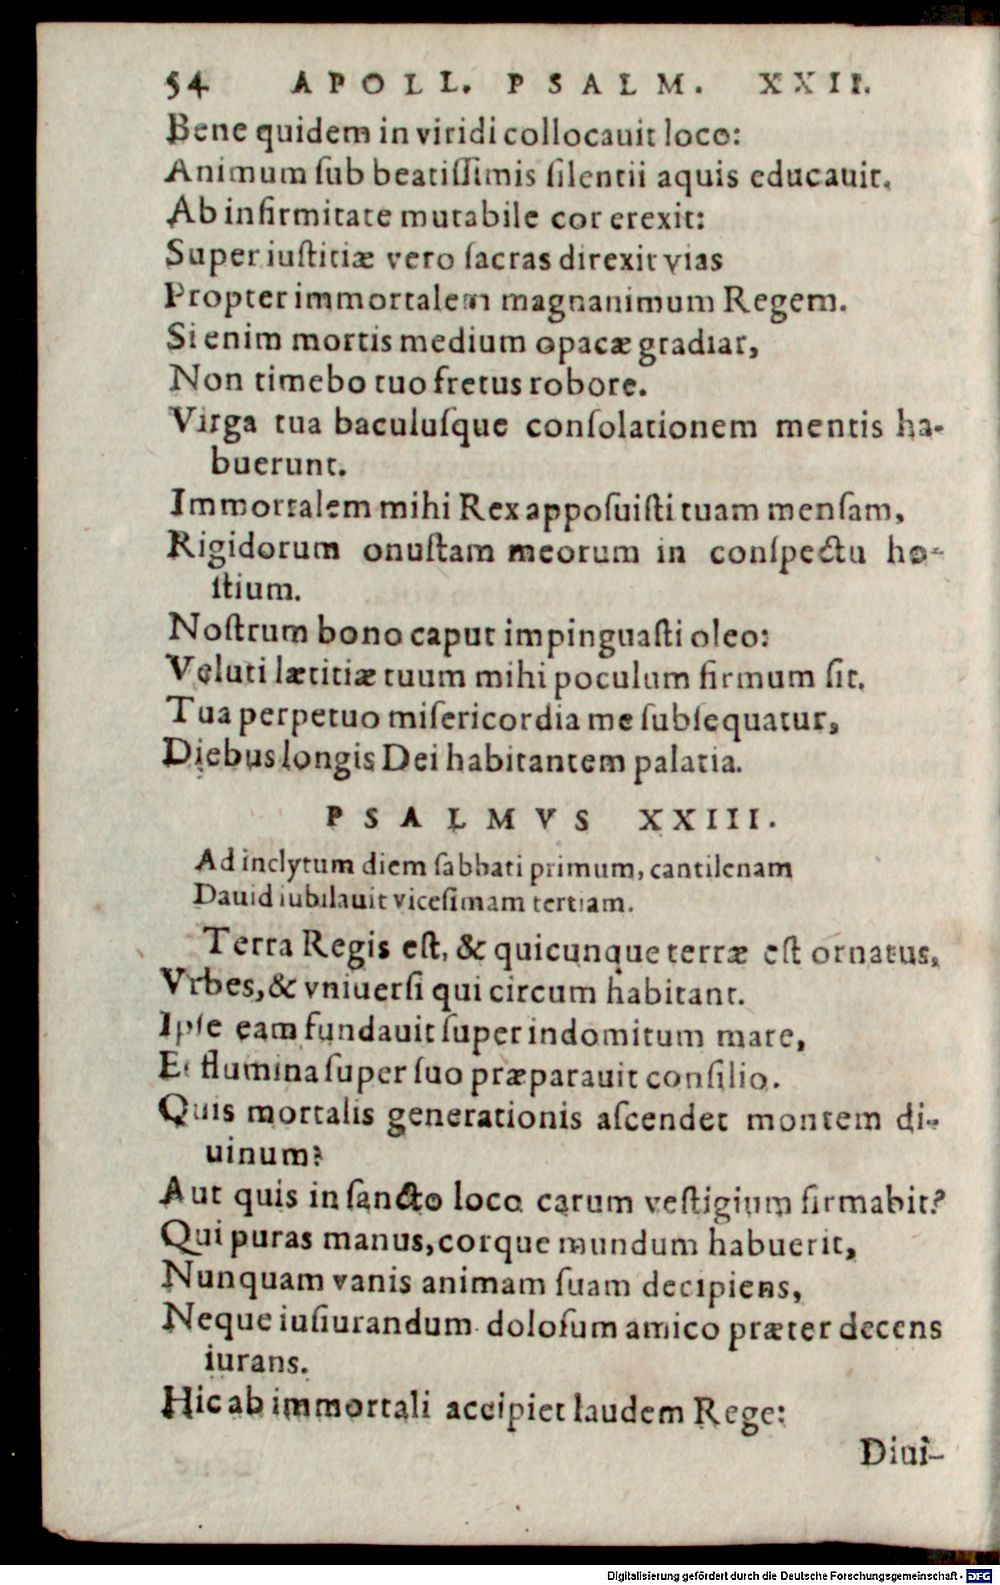 54 APOLL. PSALM. XXII.
Bene quidem in viridi collocauit loco:
Animum ſub beatiſſimis ſilentii aquis educauit.
Ab infirmitate mutabile cor erexit:
Super iuſtitiæ vero ſacras direxit vias
Propter immortalem magnanimum Regem.
Si enim mortis medium opacæ gradiar,
Non timebo tuo fretus robore.
Virga tua baculuſque conſolationem mentis ha-
buerunt.
Immortalem mihi Rex appoſuiſti tuam menſam,
Rigidorum onuſtam meorum in conſpectu ho-
ſtium.
Noſtrum bono caput impinguaſti oleo:
Veluti lætitiæ tuum mihi poculum firmum ſit.
Tua perpetuo miſericordia me ſubſequatur,
Diebus longis Dei habitantem palatia.
PSALMVS XXIII.
Ad inclytum diem ſabbati primum, cantilenam
Dauid iubilauit viceſimam tertiam.
Terra Regis eſt, & quicunque terræ eſt ornatus,
Vrbes, & vniuerſi qui circum habitant.
Ipſe eam fundauit ſuper indomitum mare,
Et flumina ſuper ſuo præparauit conſilio.
Quis mortalis generationis aſcendet montem di-
uinum?
Aut quis in ſancto loco carum veſtigium firmabit?
Qui puras manus, corque mundum habuerit,
Nunquam vanis animam ſuam decipiens,
Neque iuſiurandum doloſum amico præter decens
iurans.
Hic ab immortali accipiet laudem Rege:
Diui-
Digitalisierung gefördert durch die Deutsche Forschungsgemeinschaft - DFG